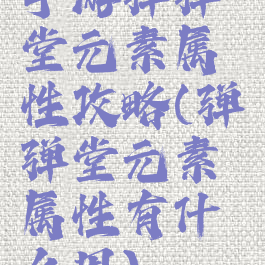 手游弹弹
堂元素属
性攻略(弹
弹堂元素
属性有什
么用)